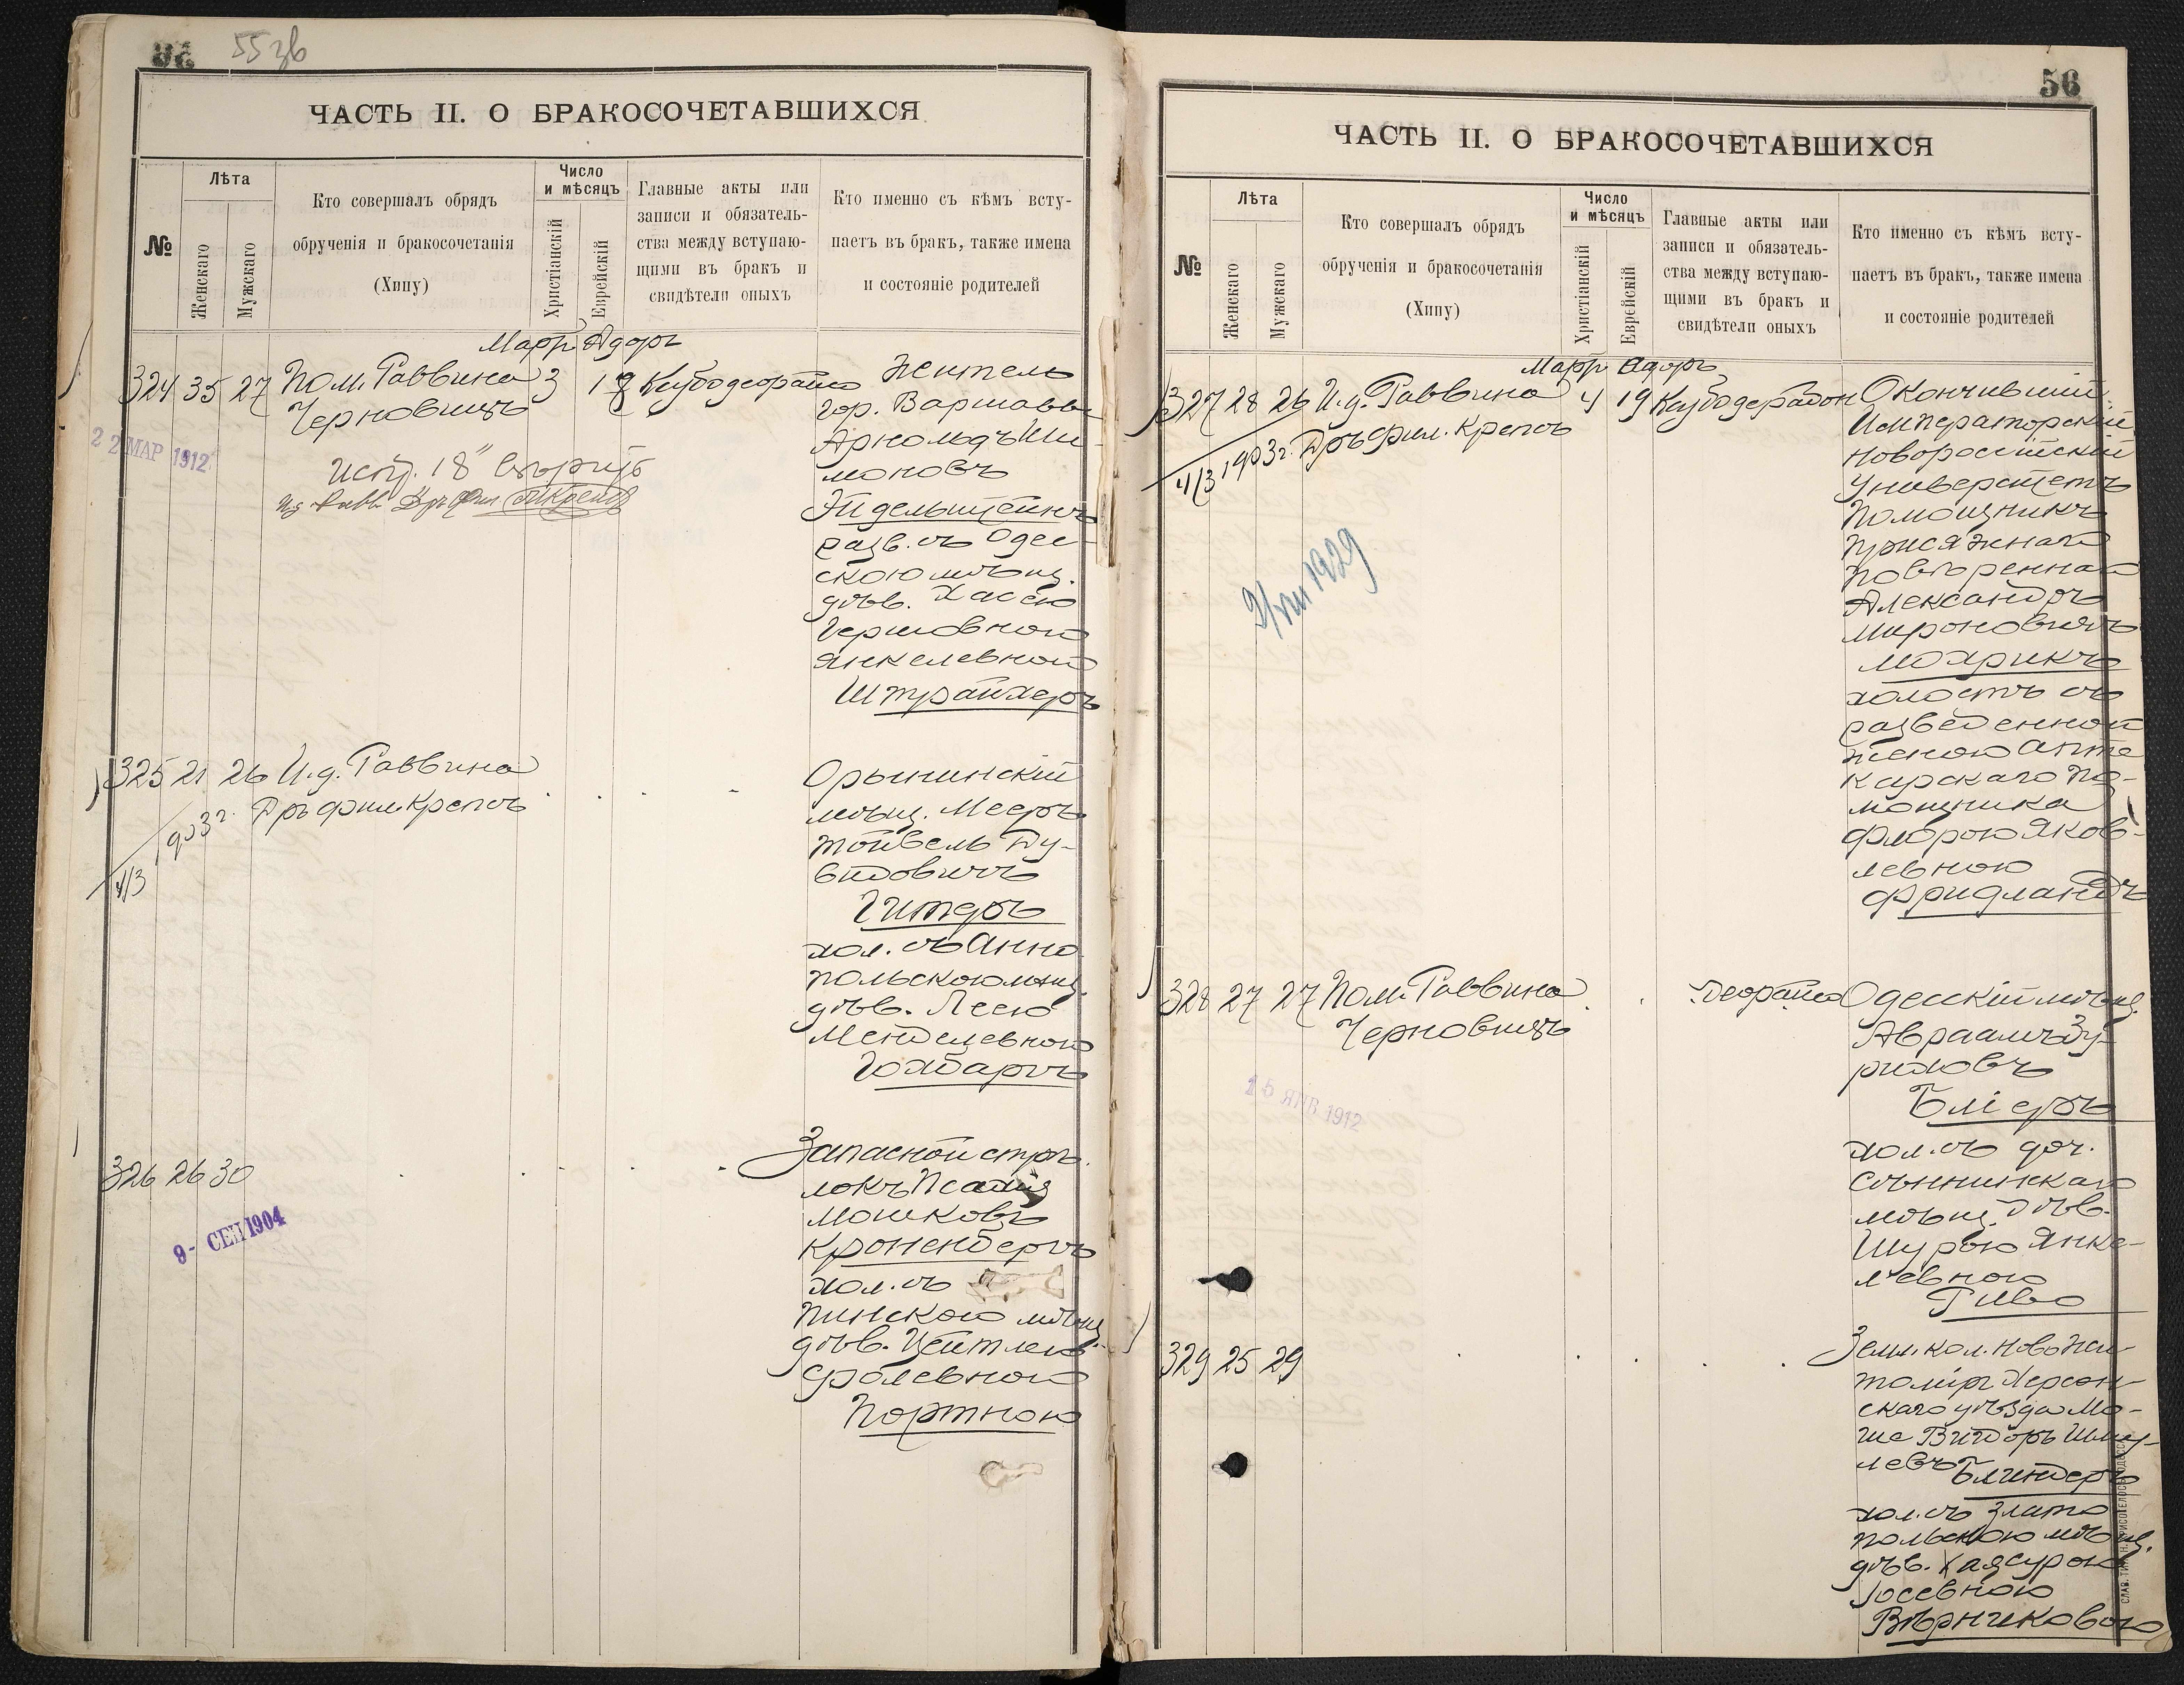 55 зв
ЧАСТЬ II. О БРАКОСОЧЕТАВШИХСЯ
№
Лѣта
Женскаго
Мужскаго
Кто совершалъ обрядъ
обрученія и бракосочетанія
(Хипу)
Число
и мѣсяцъ
Христіанскій
Еврейскій
Главные акты или
записи и обязатель-
ства между вступаю-
щими въ бракъ и
свидѣтели оныхъ
Кто именно съ кѣмъ всту-
паетъ въ бракъ, также имена
и состояніе родителей
Мартъ Адоръ
324 35 27 Пом. Раввина 3 18
Черновицъ
22 МАР 1912
Испр. 18
Житель
гор. Варшавы
Арнольдъ Ши-
моновъ
Эйдельштейнъ
разв. съ Одес-
скою мѣщ.
дѣв. Хасею
Гершовною
Янкелевною
Штрайхеръ
325 21 26 И.д. Раввина
Дръ фил. Крепсъ
4/3 1903 г.
Орынинскій
мѣщ. Мееръ
Тойвель Ду-
видовичъ
Гитеръ
хол. съ Анно
польскою мѣщ.
дѣв. Леею
Менделевною
Гохбаргъ
326 26 30
9 - СЕН 1904
Запасной стрѣ-
локъ
Мошковъ
Кроненбергъ
хол. съ
Пинскою мѣщ.
дѣв. Цейтлею
Фролевною
Портною
56
ЧАСТЬ II. О БРАКОСОЧЕТАВШИХСЯ
№
Лѣта
Женскаго
Мужскаго
Кто совершалъ обрядъ
обрученія и бракосочетанія
(Хипу)
Число
и мѣсяцъ
Христіанскій
Еврейскій
Главные акты или
записи и обязатель-
ства между вступаю-
щими въ бракъ и
свидѣтели оныхъ
Кто именно съ кѣмъ всту-
паетъ въ бракъ, также имена
и состояніе родителей
Мартъ Адоръ
327 28 26 И.д. Раввина 4 19
Дръ фил. Крепсъ
4/3 1903 г.
9/VIII 1929
Окончившій
Императорскій
Новороссійскій
Университетъ
Помощникъ
Присяжнаго
Повѣреннаго
Александръ
Мироновичъ
Моэрикъ
холостъ съ
разведенной
женою Апте
карскаго По-
мощника
Флорою Яков-
левною
Фридландъ
328 27 27 Пом. Раввина
Черновицъ
15 ЯНВ 1912
Одесскій мѣщ.
Авраамъ Зу-
риховъ
Бліеръ
хол. съ доч.
Сѣнницкаго
мѣщ. дѣв.
Шурою Янке-
левною
Гиво
329 25 29
Земл. кол. Ново Жи-
томіръ Херсон-
скаго уѣзда Мо-
ше Вигдоръ Шму-
левъ Блиндеръ
хол. съ Злато
польскою мѣщ.
дѣв. Хаясурою
Іосевною
Вѣрниковою